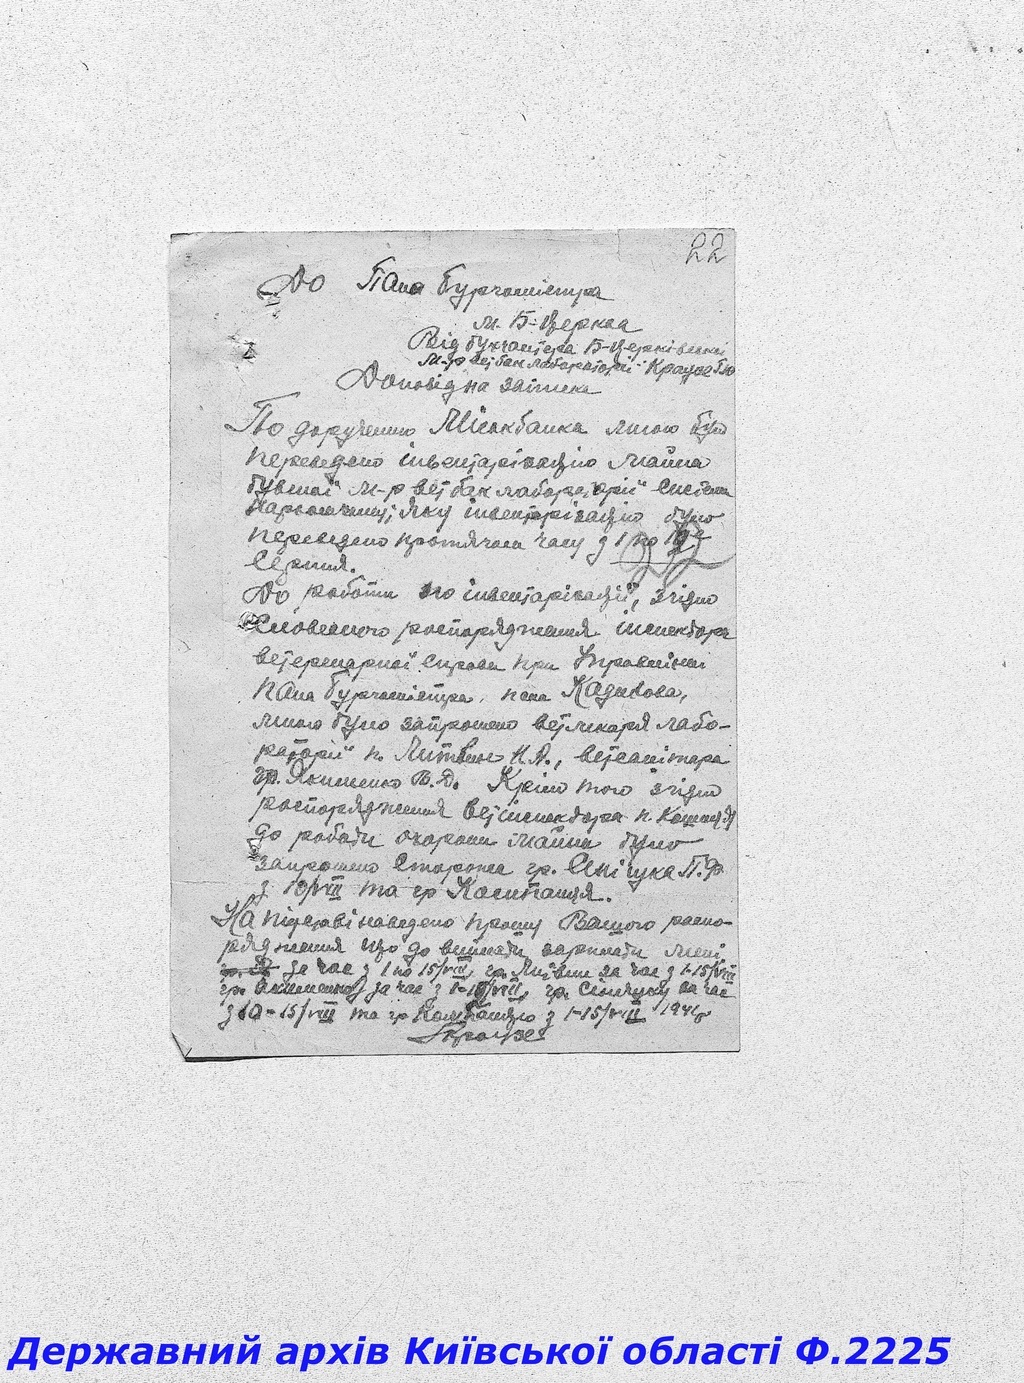 22
До Пана Бургомістра
м. Б-Церква
Від бухгалтера Б-Церківської
м-р вет бак лабораторії Краузе
Доповідна записка
По дорученню Міськбанка мною було
переведено інвентарізацію майна
бувшої м-р вет бак лабораторії системи
яку інвентарізацію було
переведено протягом часу з 1 по
серпня.
До роботи по інвентарізації, згідно
словесного роспорядження інспектора
ветеринарної справи при Управлінні
пана Бургомістра, пана Кадикова,
мною було запрошено ветлікаря лабо-
раторії п. Литвин Н.А., ветсанітара
гр. Якименко В.Д. Крім того згідно
роспорядження ветінспектора п.
до роботи охорони майна було
запрошено сторожа гр. Снігука П.Ф.
з 10/VIII та гр
На підставі наведено прошу Вашого роспо-
рядження що до виплати зарплати мені
за час з 1 по 15/VIII, гр. Литвин за час з 1-15/VIII
гр. Якименко за час з 1-15/VIII, гр. Снігуку за час
з 10-15/VIII та гр з 1-15/VIII 1941р
Краузе
Державний архів Київської області Ф.2225